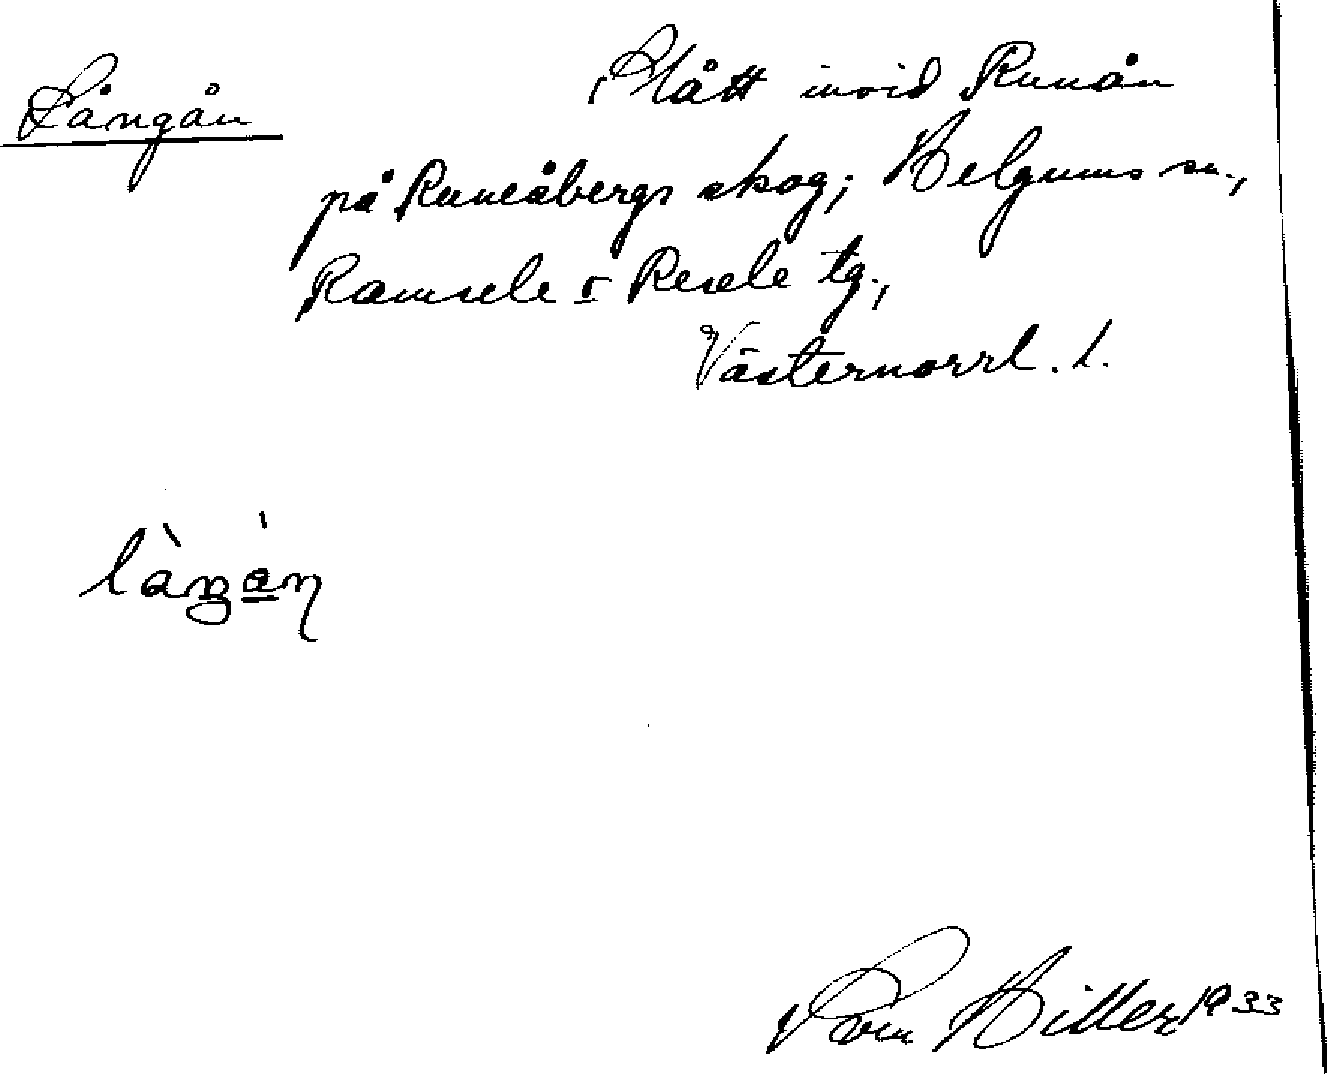 Långån
Slått invid Runån
på Runeåbergs skog; Helgums sn.,
Ramsele o Resele tg.,
Västernorrl. l.
làŋgán
Hiller 1933